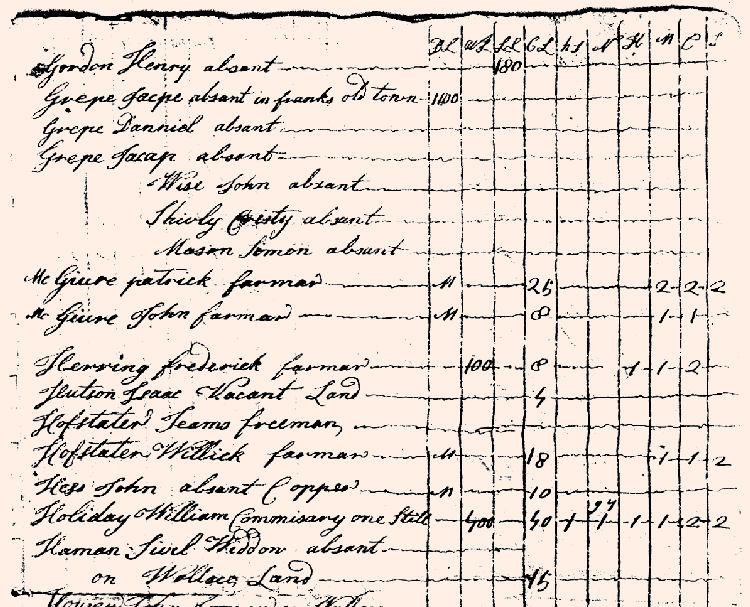 DL WL LL CL hs N H M C S
Gordon Henry absant 180
Grepe Jacpe absant in franks old town 1400
Grepe Danniel absant
Grepe Jacap absant
Wise John absant
Shirly absant
Mason Simon absant
Mc Giure patrick farmar M 25 2 2 2
Mc Giure John farmar M 8 1 1
Herring frederick farmar 100 8 1 1 2
Hutson Isaac Vacant Land 4
Hofstater Jeams freeman
Hofstater Willick farmar M 18 1 1 2
Hess John absant Copper M 10
Holiday William Commisary one Still 400 40 1 1 1 1 2 2
Haman Widdow absant
on Wollace Land 15
John